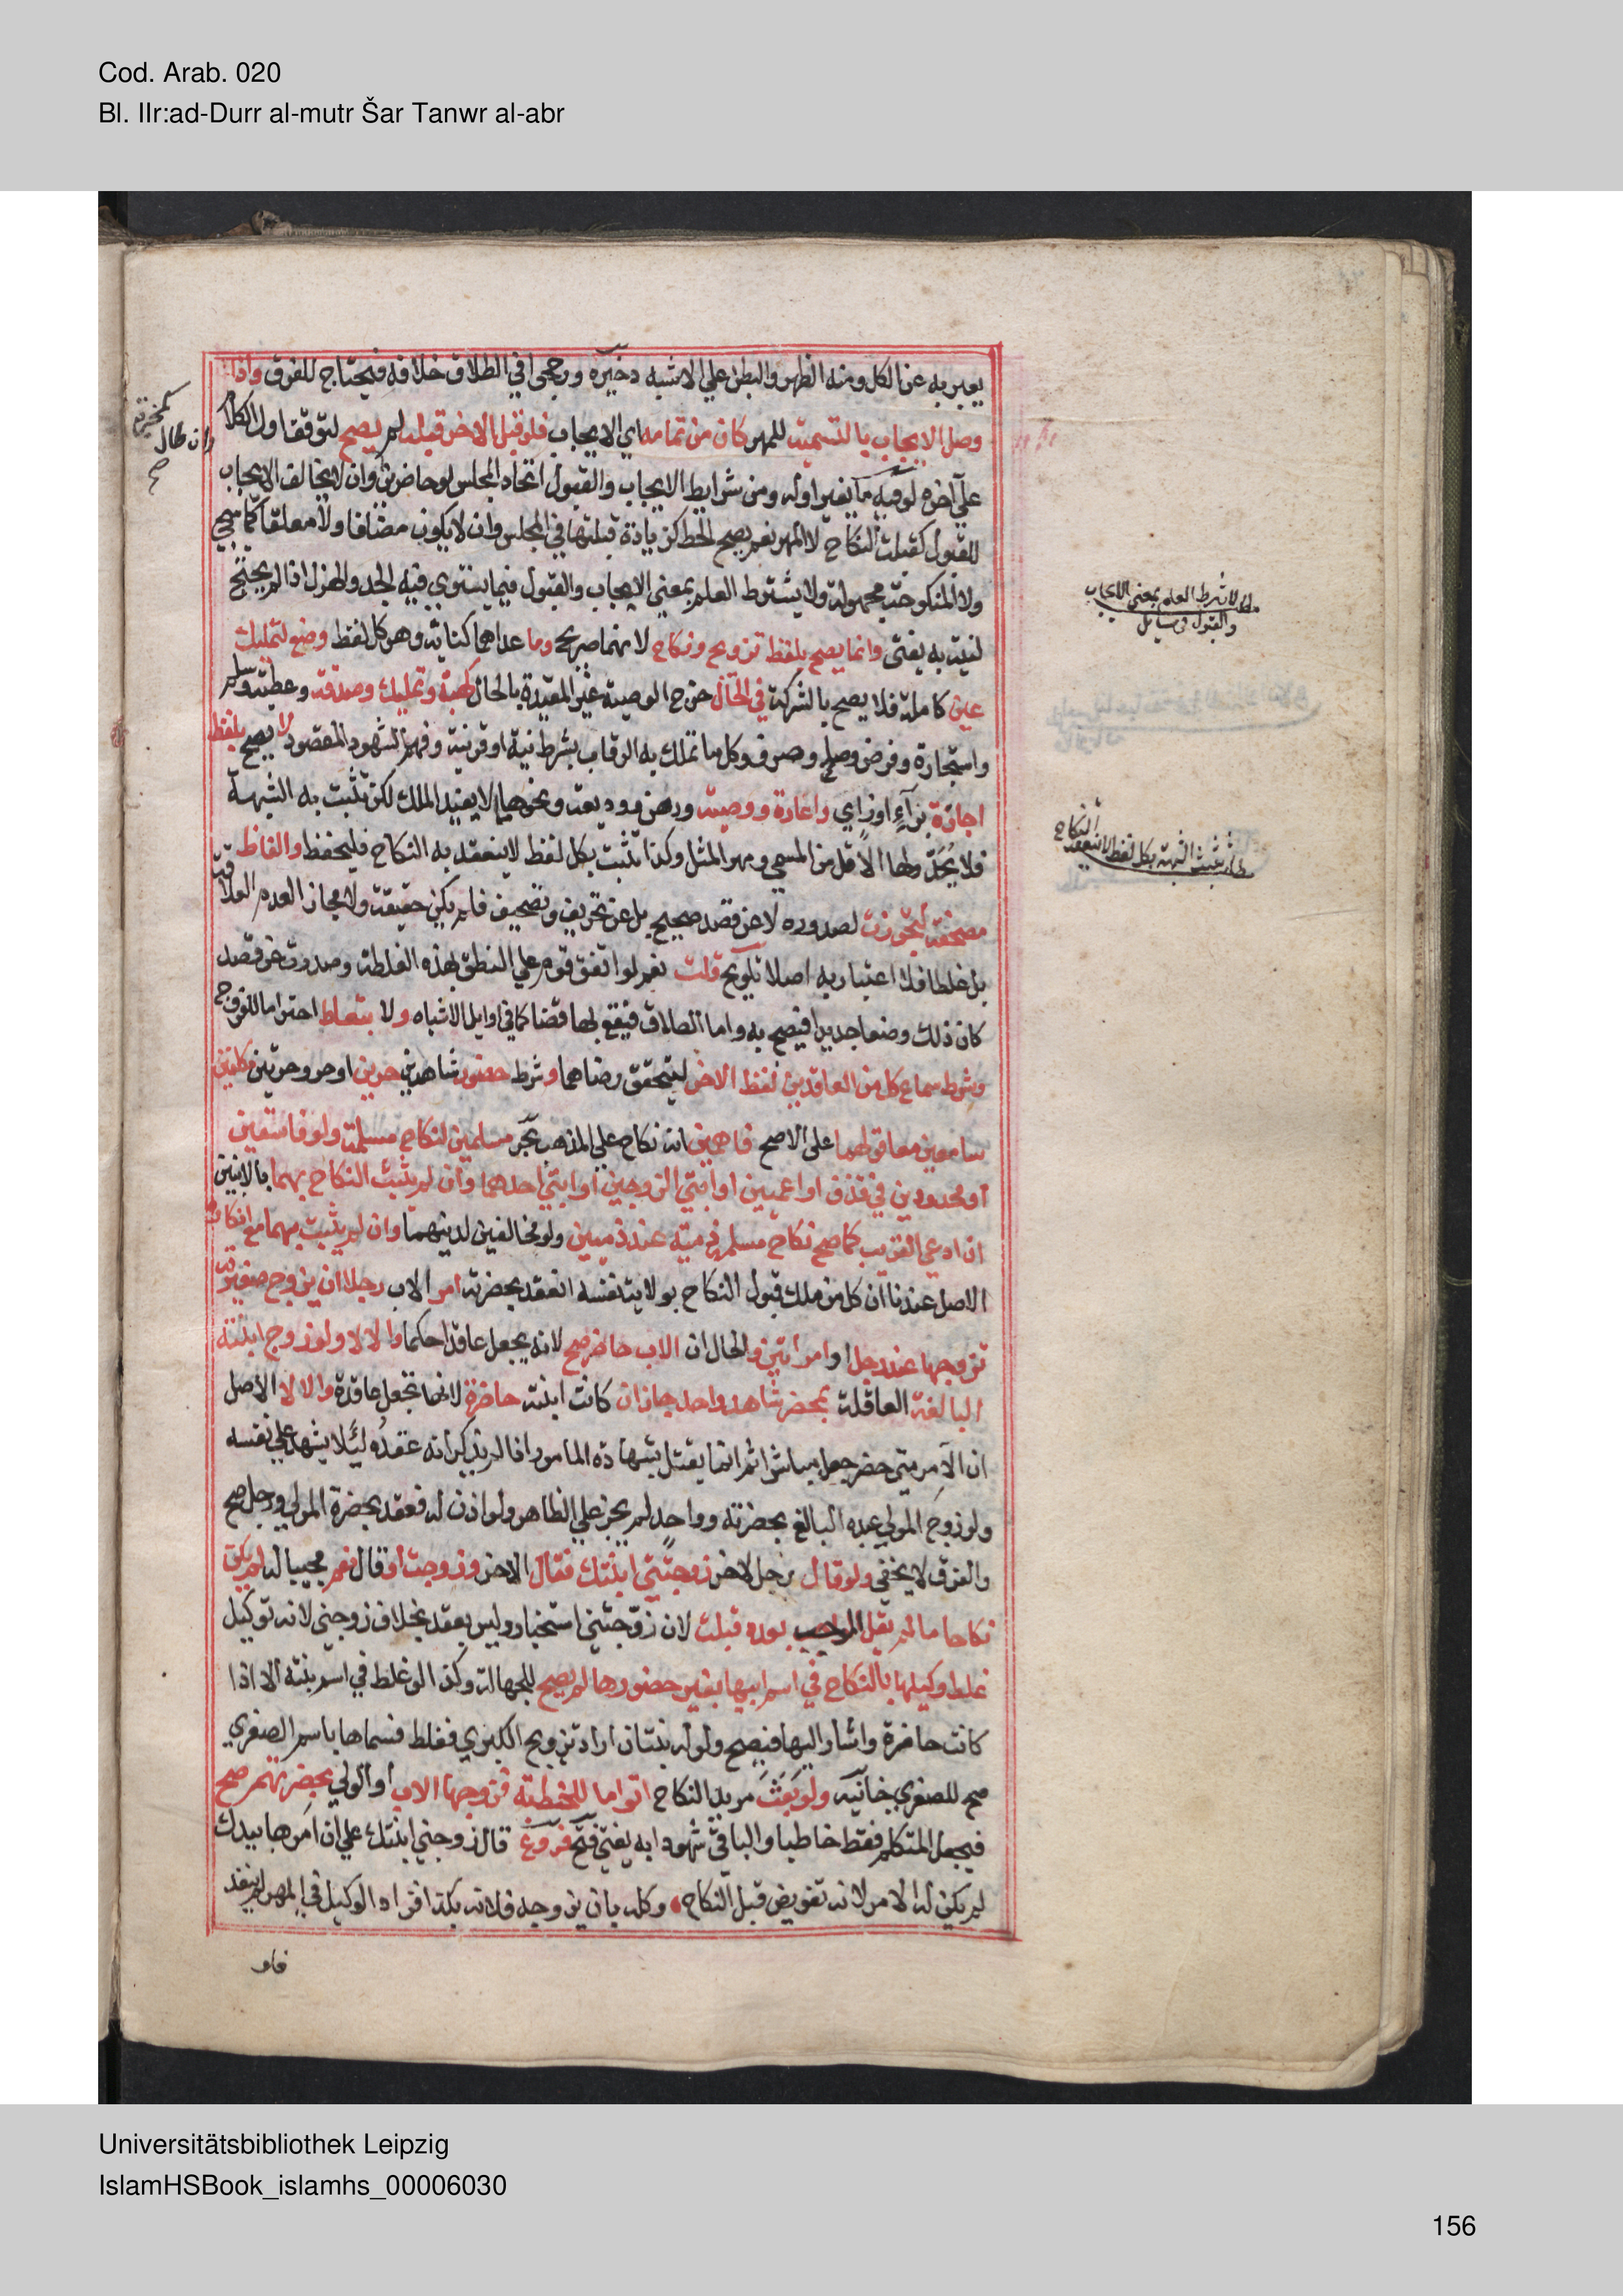 Cod. Arab. 020
Bl. IIr:ad-Durr al-mutr Šar Tanwr al-abr
يعبر به عن الكل ومنه الظهر والبطن علي الاشبه ذخيرة ورجحوا في الطلاق خلافه فيحتاج للفرق واذا
وصل الايجاب بالتسمية للمهر كان من تمامه اي الايجاب فلو قبل الاخر قبله لم يصح لتوقف اول الكلام
علي آخره لو فيه ما يغير اوله ومن شرايط الايجاب والقبول اتحاد المجلس لو حاضرين وان لا يخالف الايجاب
للقبول كقبلت النكاح لا المهر نعم يصح الحط كزيادة قبلتها في المجلس وان لا يكون مضافا ولا معلقا كما سيجي
ولا المنكوحة مجهولة ولا يشترط العلم بمعني الايجاب والقبول فيما يستوي فيه الجد والهزل اذا لم يحتج
لنية به يفتى وانما يصح بلفظ تزويج ونكاح لانهما صريح وما عداهما كناية وهو كل لفظ وضع لتمليك
عين كاملة فلا يصح بالشركة في الحال خرج الوصية غير المقيدة بالحال كهبة وتمليك وصدقة وعطية وسلم
واستجارة وقرض وصلح وصرف وكل ما تملك به الرقاب بشرط نية او قرينة وفهم الشهود المقصود لا يصح بلفظ
اجارة براء او زاي واعارة ووصية ورهن ووديعة ونحوها مما لا يفيد الملك لكن تثبت به الشبهة
فلا يحد ولها الاقل من المسمي ومهر المثل وكذا تثبت بكل لفظ لا ينعقد به النكاح فليحفظ والفاظ
مصحفة كتجوزت لصدوره لا عن قصد صحيح بل عن تحريف وتصحيف فلم يكن حقيقة ولا مجازا لعدم العلاقة
بل غلطا فلا اعتبار به اصلا تلويح قلت نعم لو اتفق قوم علي النطق بهذه الغلطة وصدرت عن قصد
كان ذلك وضعا جديدا فيصح به واما الطلاق فيقع بها قضا كما في اوايل الاشباه ولا بتعاط احتراما للفروج
وشرط سماع كل من العاقدين لفظ الاخر ليتحقق رضاهما وشرط حضور شاهدين حرين او حر وحرتين مكلفين
سامعين معا قولهما على الاصح فاهمين انه نكاح علي المذهب بحر مسلمين لنكاح مسلمة ولو فاسقين
او محدودين في قذف او اعميين او ابني الزوجين او ابني احدهما وان لم يثبت النكاح بهما بالابنين
ان ادعي القريب كما صح نكاح مسلم ذمية عند ذميين ولو مخالفين لدينهما وان لم يثبت بهما مع انكاره
الاصل عندنا ان كل من ملك قبول النكاح بولاية نفسه انعقد بحضرته امر الاب رجلا ان يزوج صغيرته
تزوجها عند رجل او امراتين والحال ان الاب حاضر صح لانه يجعل عاقدا حكما والا لا ولو زوج ابنته
البالغة العاقلة بمحضر شاهد واحد جاز ان كانت ابنته حاضرة لانها تجعل عاقدة والا لا الاصل
ان الآمر متى حضر جعل مباشرا ثم انما يقبل شهادة المامور اذا لم يذكر انه عقده ليلا يشهد علي نفسه
ولو زوج المولي عبده البالغ بحضرته وواحد لم يجز علي الظاهر ولو اذن له فعقد بحضرة المولي ورجل صح
والفرق لا يخفي ولو قال رجل لاخر زوجتني ابنتك فقال الاخر زوجت او قال نعم مجيبا له لم يكن
نكاحا ما لم يقل الموجب بعده قبلت لان زوجتني استخبار وليس بعقد بخلاف زوجني لانه توكيل
غلط وكيلها بالنكاح في اسم ابيها بغير حضورها لم يصح للجهالة وكذا لو غلط في اسم بنته الا اذا
كانت حاضرة واشار اليها فيصح ولو له بنتان اراد تزويج الكبري فغلط فسماها باسم الصغري
صح للصغري خانيه ولو بعث مريد النكاح اقواما للخطبة فزوجها الاب او الولي بحضرتهم صح
فيجعل المتكلم فقط خاطبا والباقي شهودا به يفتي فتح فروع قال زوجني ابنتك علي ان امرها بيدك
لم يكن له الامر لانه تفويض قبل النكاح وكله بان يزوجه فلانة بكذا فزاد الوكيل في المهر لم ينفذ
فلو
وان طال
مط لا يشرط العلم بمعني الايجاب
والقبول في مسايل
النكاح
مط تثبت الشبهة بكل لفظ لا ينعقد
Universitätsbibliothek Leipzig
IslamHSBook_islamhs_00006030
156